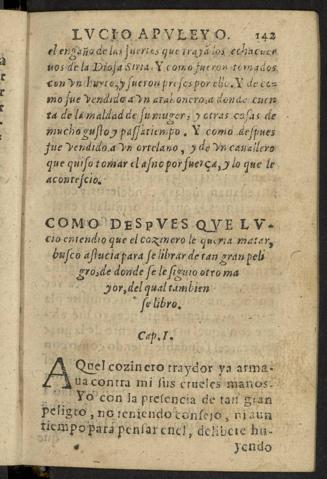 LVCIO APVLEYO. 142
el engaño de las suertes que trayā los echacue
uos de la Diosa Siria. Y como fueron tomados
con vn hurto, y fueron presos por ello. Y de co-
mo fue vendido a vn atahonero, a donde cuen
ta de la maldad de su muger, y otras cosas de
mucho gusto y passatiempo. Y como despues
fue vendido a vn ortelano, y de vn cauallero
que quiso tomar el asno por fuerça, y lo que le
acontescio.
COMO DESPVES QVE LV-
cio entendio que el cozinero le queria matar,
busco astucia para se librar de tan gran peli
gro, de donde se le siguio otro ma
yor, del qual tambien
se libro.
Cap. I.
AQuel cozinero traydor ya arma-
ua contra mi sus crueles manos.
Yo con la presencia de tan gran
peligro, no teniendo consejo, ni aun
tiempo para pensar en el, delibete hu-
yendo